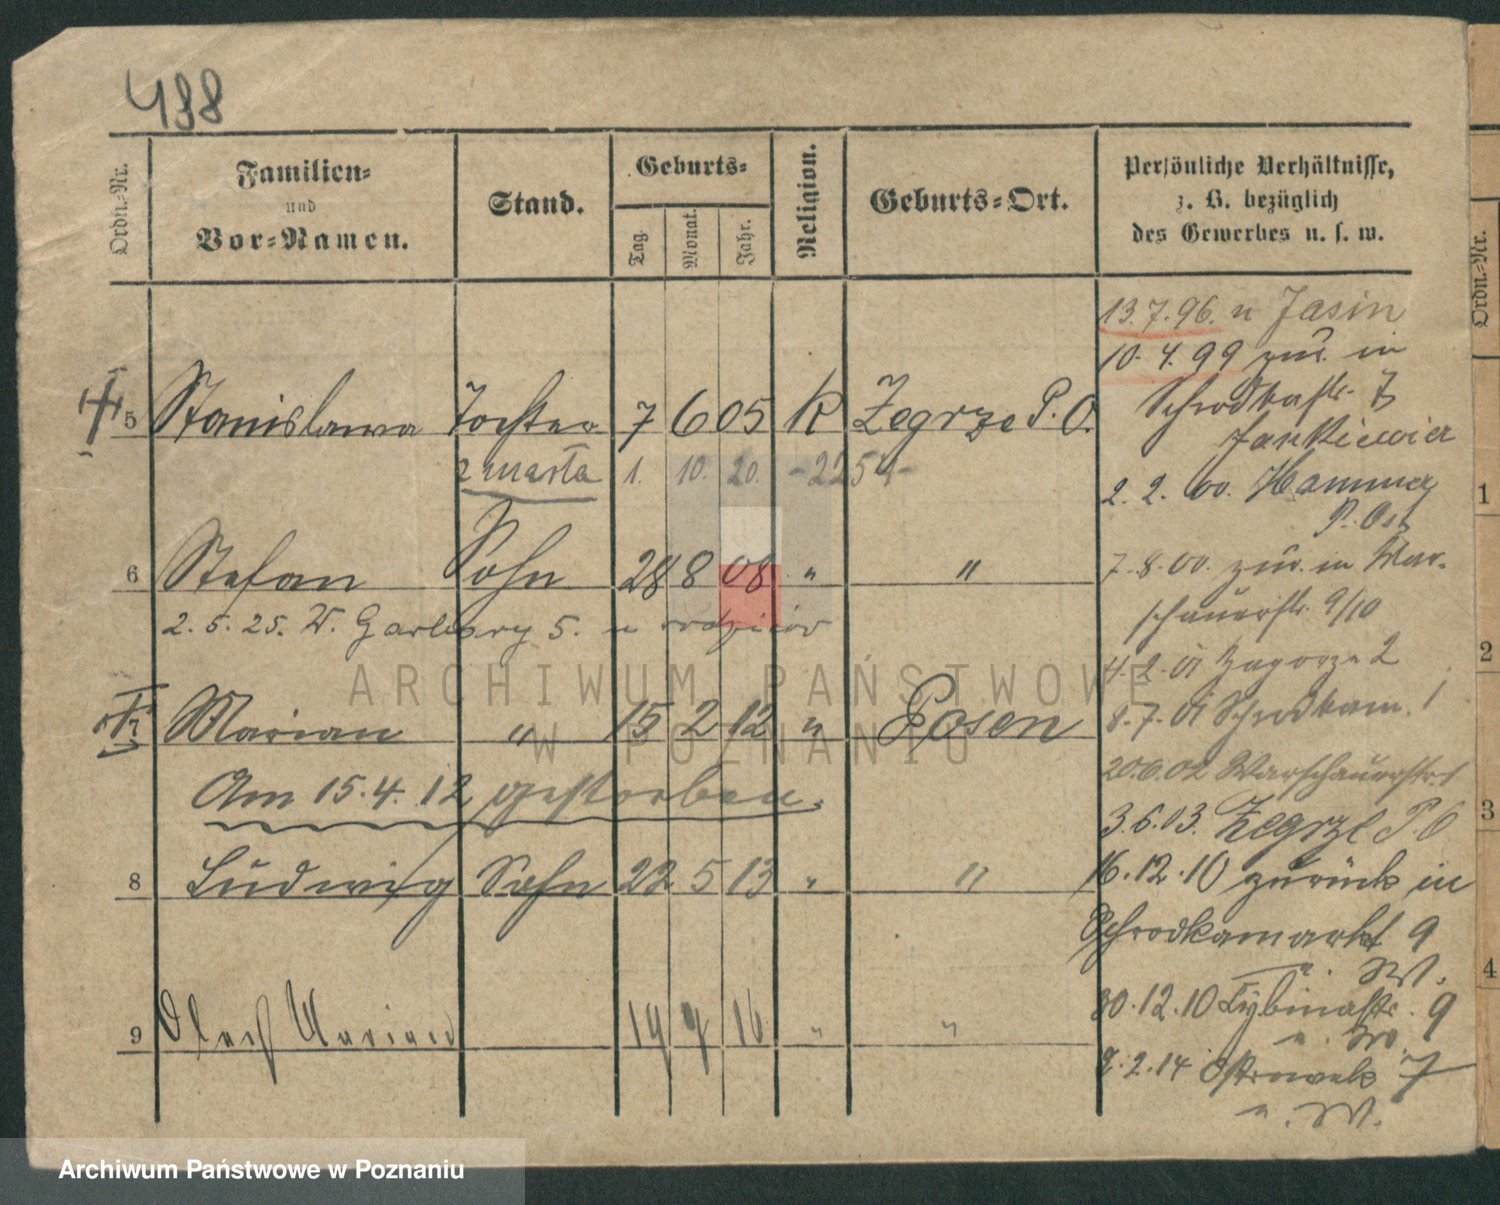 488
Ordn.-Nr.
Familien-
und
Vor-Namen.
Stand.
Geburts-
Tag.
Monat.
Jahr.
Religion.
Geburts-Ort.
Persönliche Verhältnisse,
z. B. bezüglich
des Gewerbes u. s. w.
5 Stanislawa Tochter 7 6 05 K Zegrze P. O.
zmarła 1. 10. 20. -2254-
6 Stefan Sohn 28 8 08 " "
2. 5. 25. W. Garbary 5. u rodziców
7 Marian " 15 2 12 " Posen
Am 15.4.12 gestorben.
8 Ludwig Sohn 22 5 13 " "
9 Marian 19 7 16 " "
13.7.96. n Jasin
10.4.99 zur. in
Schrodkastr. 7
Jankiewicz
2.2.00. Hammer
P. Ost
7.8.00. zur. in War-
schauerstr. 9/10
4.2.01 Zagorze 2
8.7.01 Schrodkam. 1
20.6.02 Warschauerstr. 1
3.6.03. Zegrze P. O
16.12.10 zurück in
Schrodkamarkt 9
n. W.
30.12.10 Cybinastr. 9
n. W.
2.2.14 Ostrowek 7
n. W.
Ordn.-Nr.
1
2
3
4
ARCHIWUM PAŃSTWOWE
W POZNANIU
Archiwum Państwowe w Poznaniu